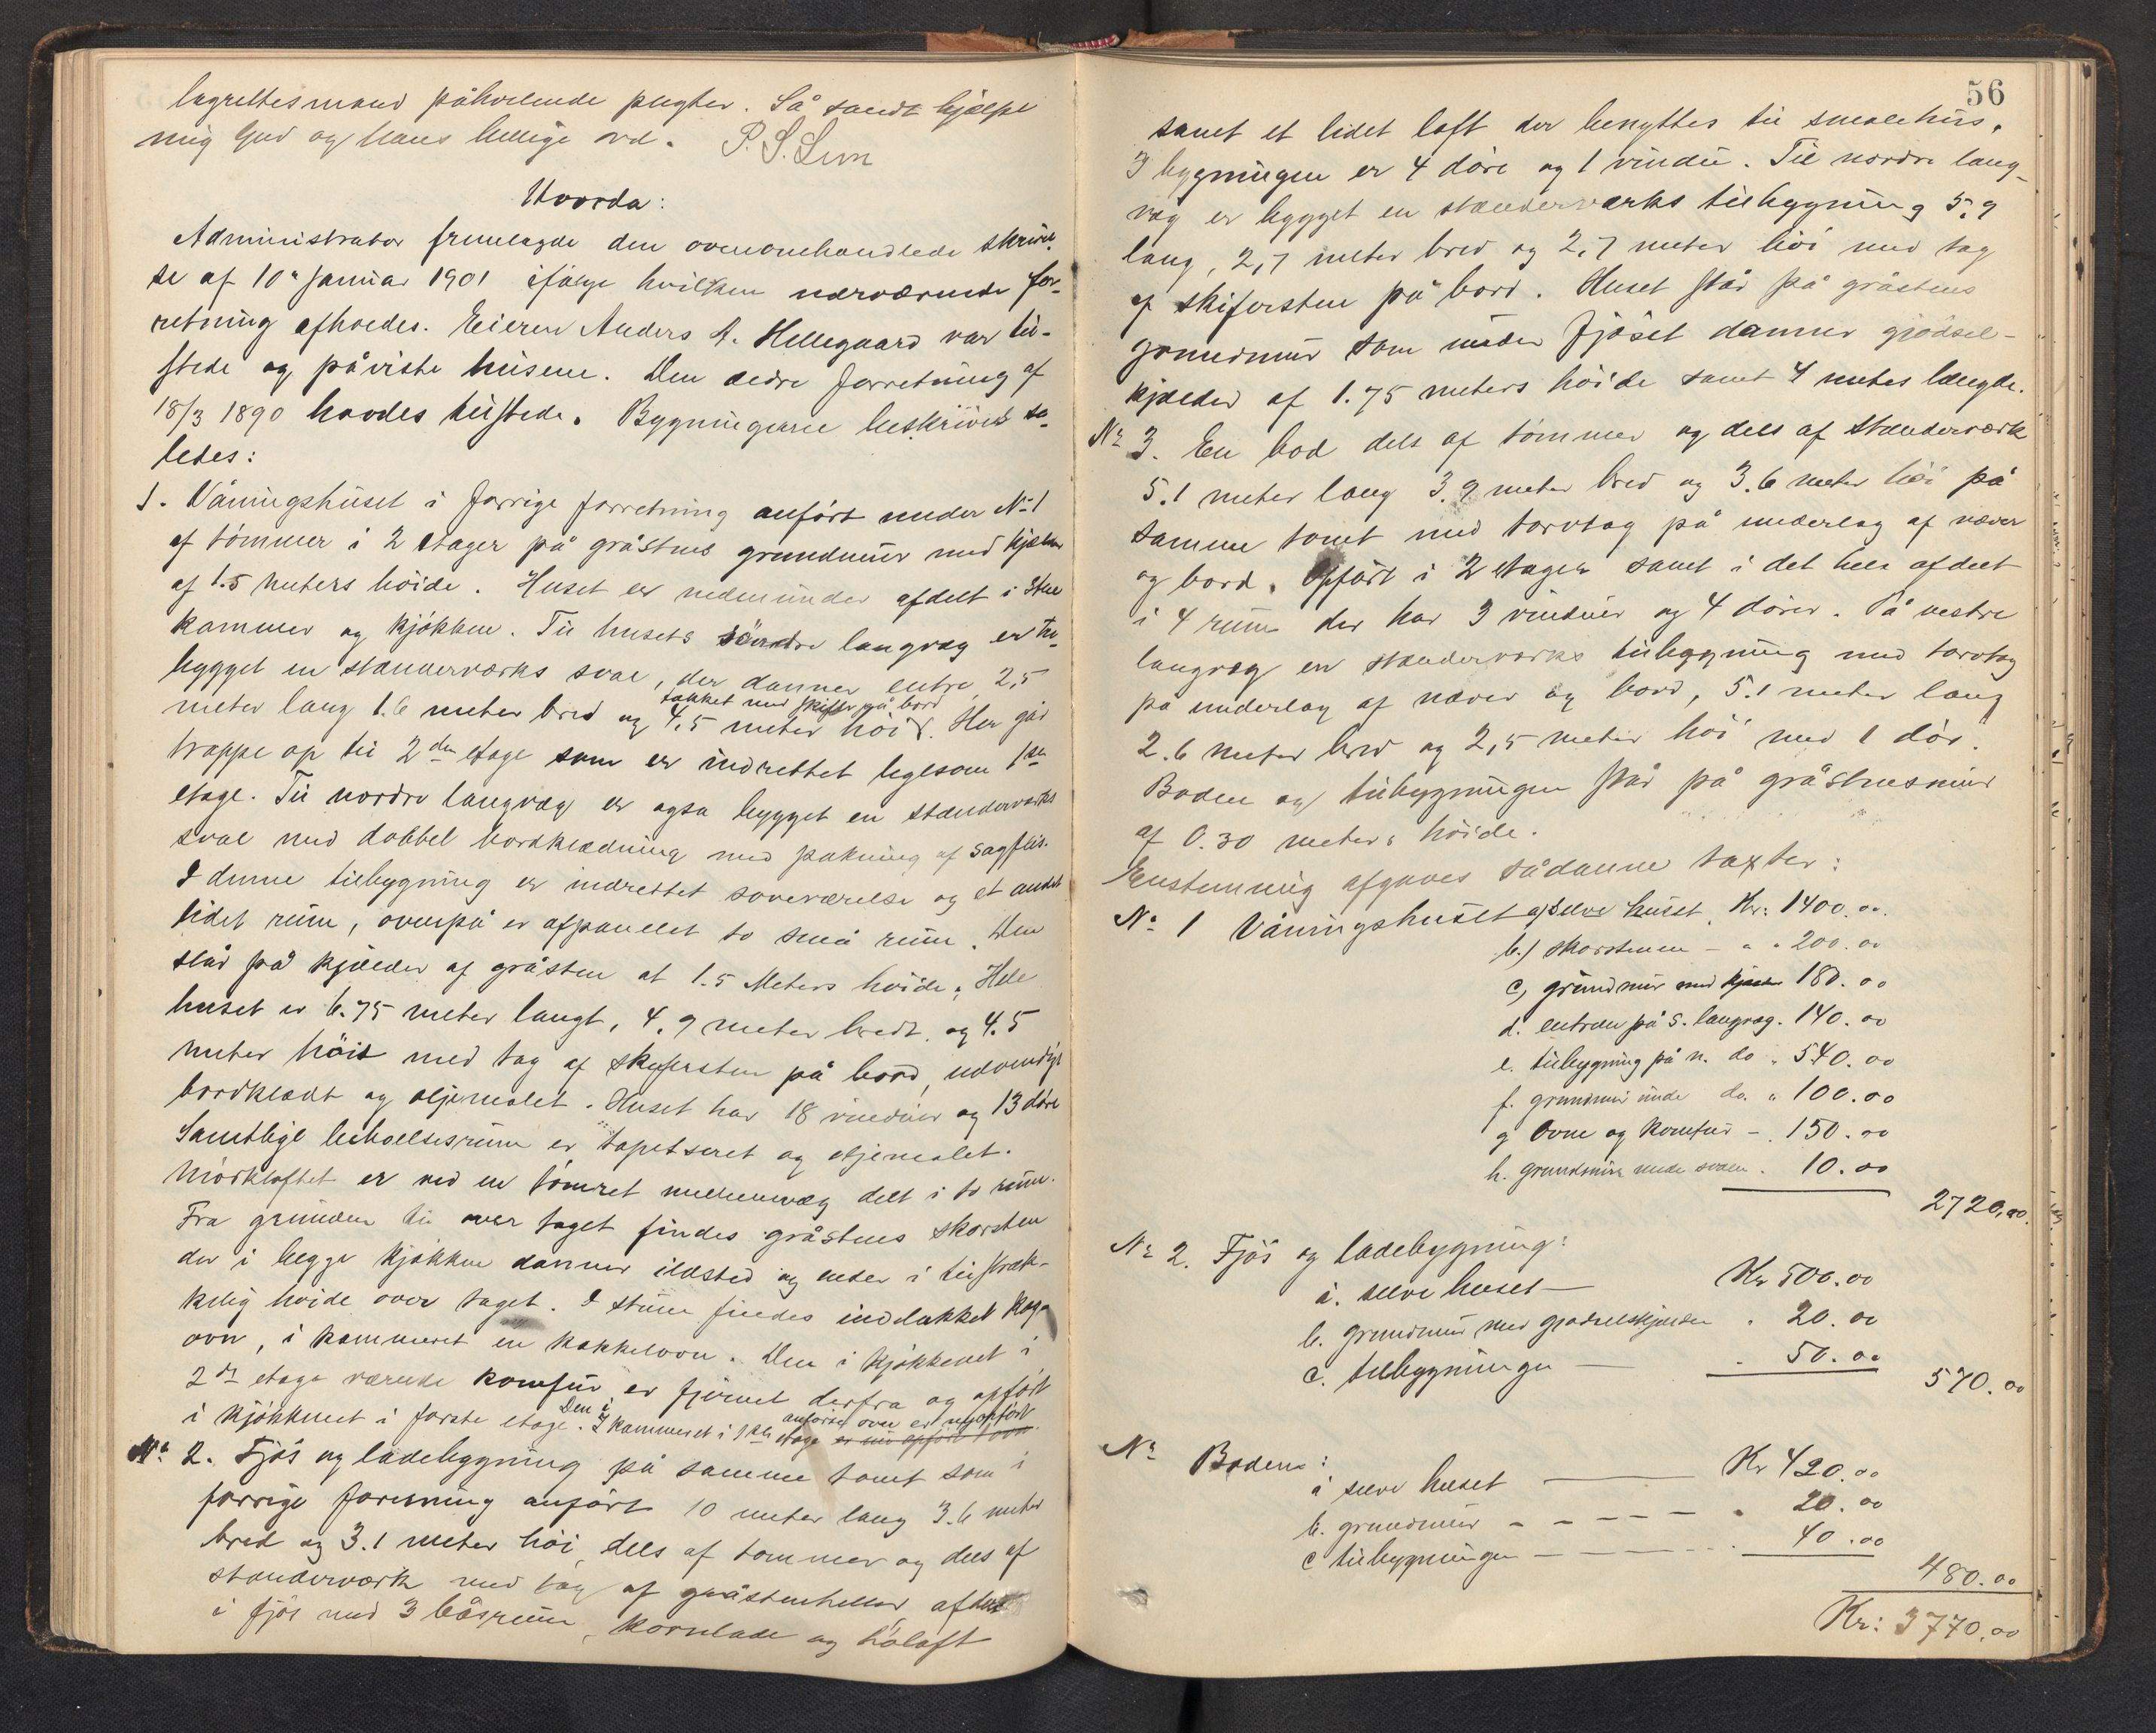 lagrettesmand påhvilende pligter. Så sandt hjælpe
mig Gud og hans hellige ord. P. S. Lem
Hvorda:
Administrator fremlagde den ovenomhandlede skrivel-
se af 10de Januar 1901 ifølge hvilken nærværende for-
retning afholdes. Eieren Anders A. Hellegaard var til-
stede og påviste husene. Den ældre forretning af
18/3 1890 havdes tilstede. Bygningerne beskrives så-
ledes:
1. Våningshuset i forrige forretning anført under No 1
af tømmer i 2 etager på gråstens grundmur med kjælder
af 1.5 meters høide. Huset er nedenunder afdelt i stue
kammer og kjøkken. Til husets søndre langvæg er til-
bygget en stænderværks sval, der danner entre 2,5
meter lang 1.6 meter bred og 4,5 meter høi takket med skifer på bord. Her går
trappe op til 2den etage som er indrettet ligesom 1ste
etage. Til nordre langvæg er også bygget en stænderværks
sval med dobbel bordklædning med pakning af sagflis.
I denne tilbygning er indrettet soveværelse og et andet
lidet rum, ovenpå er afpanelet to små rum. Den
står på kjælder af gråsten at 1.5 Meters høide. Hele
huset er 6.75 meter langt, 4.9 meter bredt og 4.5
meter høit med tag af skifersten på bord, udvendigt
bordklædt og oljemalet. Huset har 18 vinduer og 13 døre
Samtlige beboelsesrum er tapetseret og oljemalet.
Mørkloftet er ved en tømret mellemvæg delt i to rum.
Fra grunden til over taget findes gråstens skorsten
der i begge kjøkken danner ildsted og ender i tilstræk-
kelig høide over taget. I stuen findes indelukket kog-
ovn, i kammeret en kakkelovn. Den i kjøkkenet i
2den etage værende komfur er fjernet derfra og opført
i kjøkkenet i første etage. Den i kammeret i 1ste etage anførte ovn er nyopført er nu opført 1 ovn.
No 2. Fjøs og ladebygning på samme tomt som i
forrige forretning anført 10 meter lang 3.6 meter
bred og 3.1 meter høi, dels af tømmer og dels af
stænderværk med tag af gråstenheller, afdelt
i fjøs med 3 båsrum, kornlade og høloft
56
samt et lidet loft der benyttes til smalehus.
I bygningen er 4 døre og 1 vindu. Til nordre lang-
væg er bygget en stænderværks tilbygning 5.9
lang, 2,7 meter bred og 2,7 meter høi med tag
af skifersten på bord. Huset står på gråstens
grundmur som under fjøset danner gjødsel-
kjælder af 1.75 meters høide samt 4 meters længde.
No 3. En bod dels af tømmer og dels af stænderværk
5.1 meter lang 3.9 meter bred og 3.6 meter høi på
samme tomt med torvtag på underlag af næver
og bord. Opført i 2 etager samt i det hele afdelt
i 4 rum der har 3 vinduer og 4 dører. På vestre
langvæg er stænderværks tilbygning med torvtag
på underlag af næver og bord, 5.1 meter lang
2.6 meter bred og 2,5 meter høi med 1 dør.
Boden og tilbygningen står på gråstensmur
af 0.30 meters høide.
Enstemmig afgaves sådanne taxter:
No 1 Våningshuset a) selve huset Kr: 1400.00
b.) skorstenen - " " 200.00
c) grundmur med kjælder 180.00
d. entreen på s. langvæg. 140.00
e. tilbygning på n. do " 540.00
f. grundmur under do. " 100.00
g Ovne og komfur - . 150.00
h. grundmur under svalen . 10.00
2720,00.
No 2. Fjøs og ladebygning:
a. selve huset — Kr 500.00
b. grundmur med gjødselkjælder . 20.00
c. tilbygningen — . 50.00
570.00
No Boden:
a selve huset — Kr 420.00
b. grundmur - - - - - " 20.00
c tilbygningen — 40.00
480.00
Kr: 3770.00